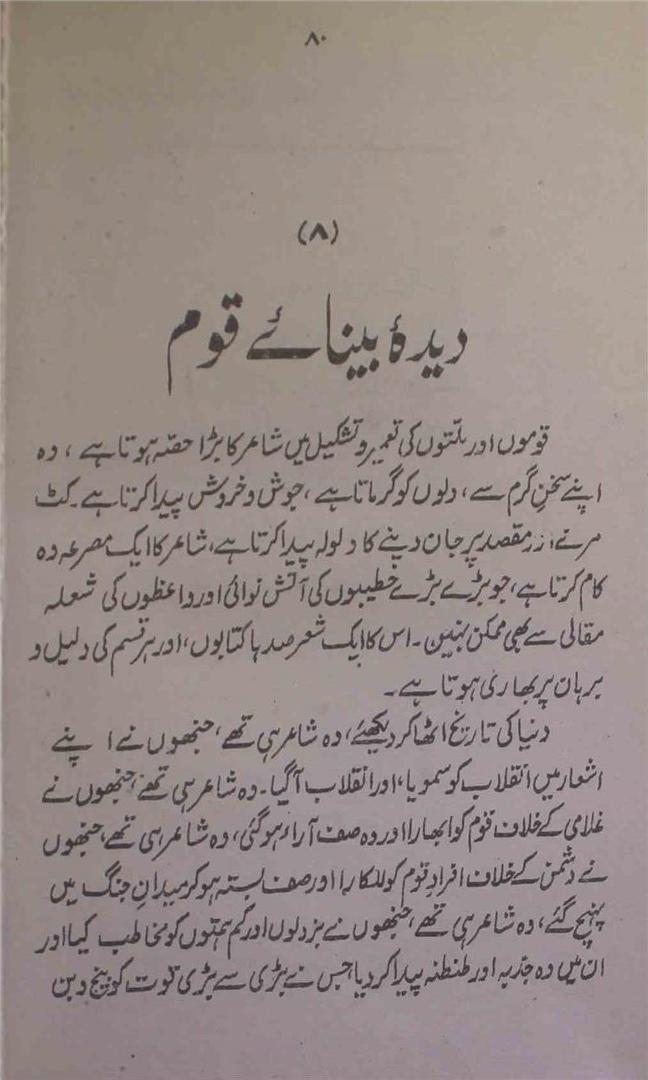 ۸۰
(۸)
دیدۂ بینائے قوم
قوموں اور ملّتوں کی تعمیر و تشکیل میں شاعر کا بڑا حصّہ ہوتا ہے، وہ
اپنے سخنِ گرم سے، دلوں کو گرماتا ہے، جوش و خروش پیدا کرتا ہے۔ کٹ
مرنے اور مقصد پر جان دینے کا ولولہ پیدا کرتا ہے، شاعر کا ایک مصرعہ وہ
کام کرتا ہے، جو بڑے بڑے خطیبوں کی آتش نوائی اور واعظوں کی شعلہ
مقالی سے بھی ممکن نہیں۔ اس کا ایک شعر صدہا کتابوں، اور ہر قسم کی دلیل و
برہان پر بھاری ہوتا ہے۔
دنیا کی تاریخ اٹھا کر دیکھئے، وہ شاعر ہی تھے، جنھوں نے اپنے
اشعار میں انقلاب کو سمویا، اور انقلاب آگیا۔ وہ شاعر ہی تھے، جنھوں نے
غلامی کے خلاف قوم کو ابھارا اور وہ صف آراء ہو گئی، وہ شاعر ہی تھے، جنھوں
نے دشمن کے خلاف افرادِ قوم کو للکارا اور صف بستہ ہو کر میدانِ جنگ میں
پہنچ گئے، وہ شاعر ہی تھے، جنھوں نے بزدلوں اور کم ہمتوں کو مخاطب کیا اور
ان میں وہ جذبہ اور طنطنہ پیدا کر دیا جس نے بڑی سے بڑی قوت کو بیخ و بن